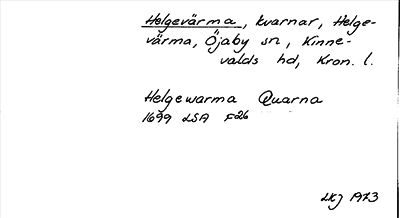 Helgevärma, kvarnar, Helge-
värma, Öjaby sn, Kinne-
valds hd, Kron. l.
Helgewarma Quarna
1699 LSA F26
LKJ 1973